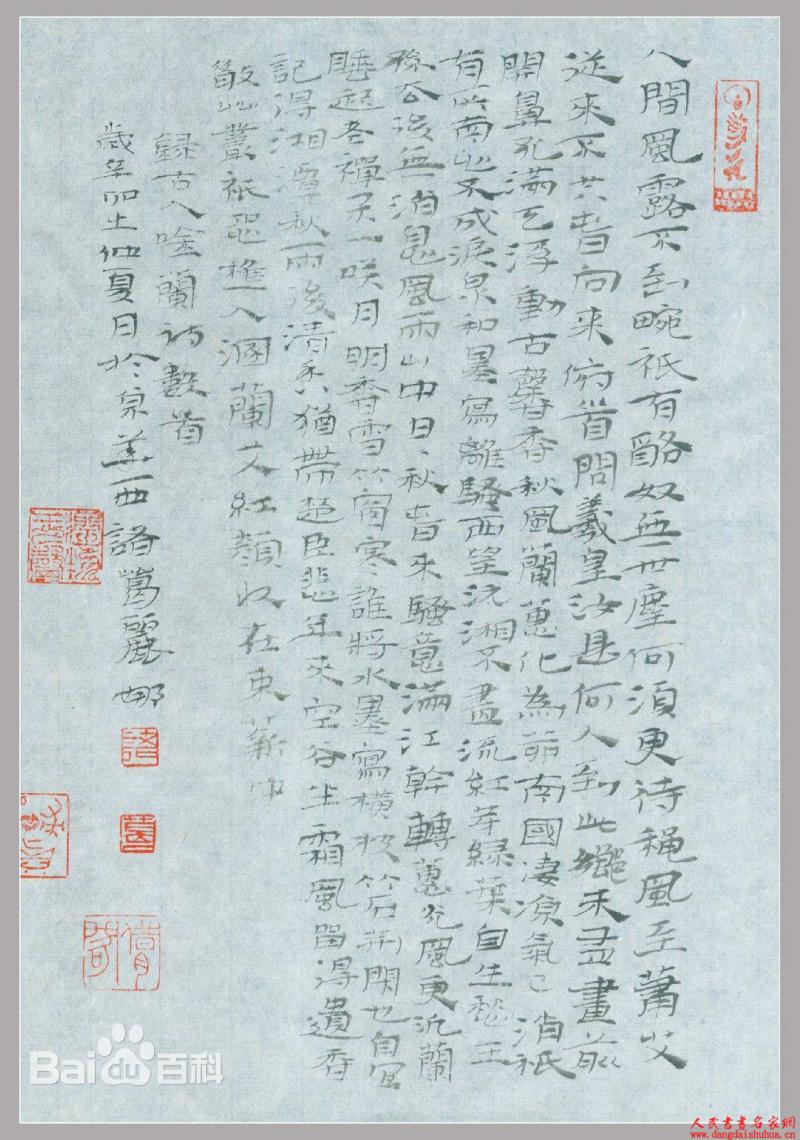 人間風露不到畹祇有酪奴無世塵何須更待穐風至蕭艾
從來不共旹向來俯首問羲皇汝是何人到此鄉未盡畫前
開鼻孔滿天浮動古馨香秋風蘭蕙化為茆南國淒涼氣已消祇
有所南心不成淚泉和墨寫離騷西望沅湘不盡流紅芽綠葉自生愁王
孫公後無消息風雨山中日日秋旹來騷意滿江幹轉蕙光風更汎蘭
睡起老禪天一咲月明香雪竹窗寒誰將水墨寫橫披竹石荊閑也自宜
記得湘濱秋雨後清香猶帶楚臣悲年來空谷半霜風留得遺香
散此叢祇恐樵人溷蘭艾紅顏收在束薪中
錄古人唫蘭詩數首
歲辛卯之仲夏月於京華西諸葛麗娜
諸
葛
Bai百科
人民書畫名家網
www.dangdaishuhua.cn